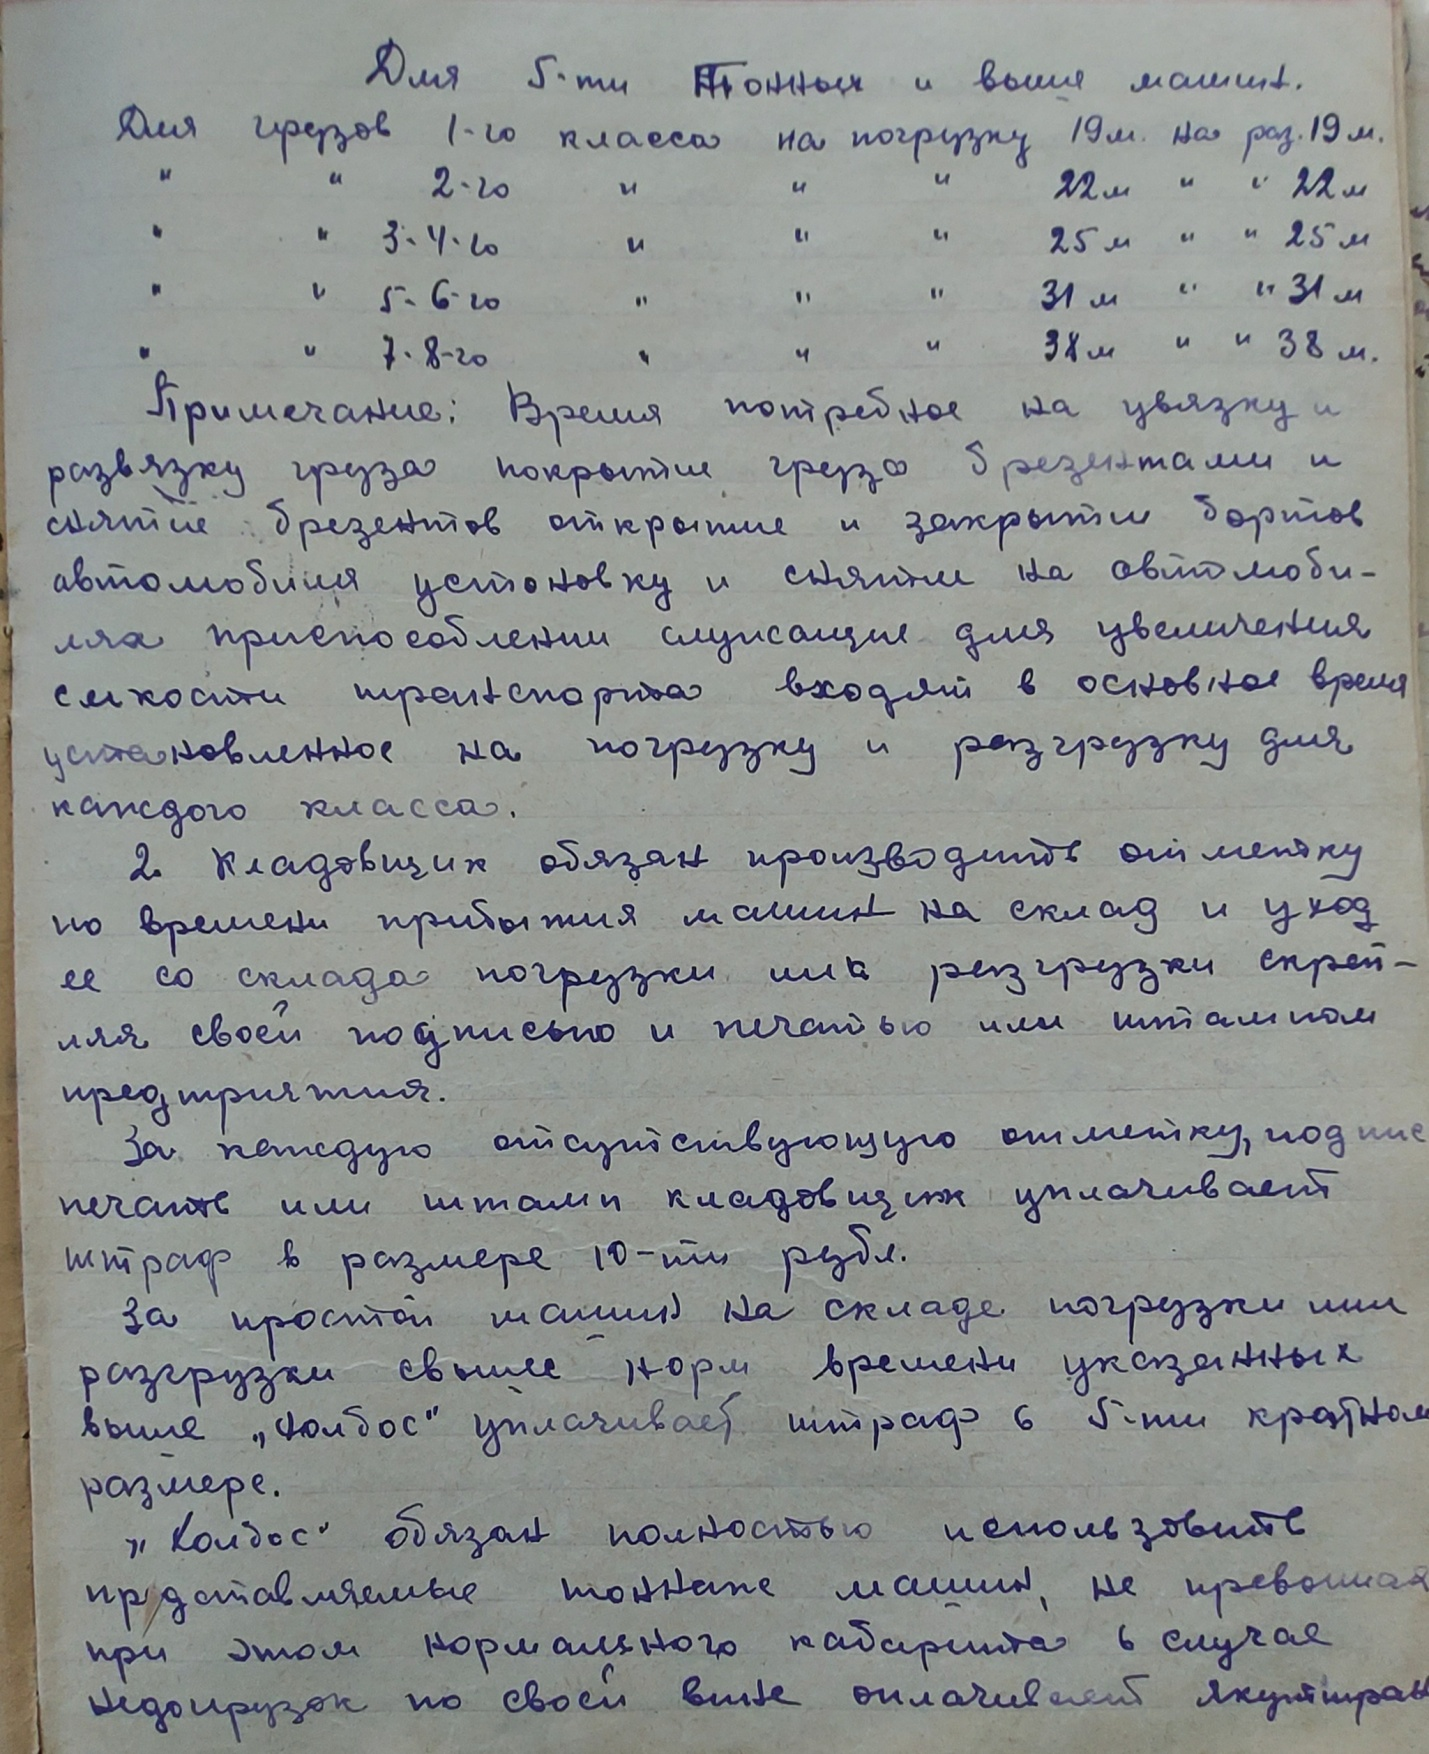 Для 5-ти Тонных и выше машин.
Для грузов 1-го класса на погрузку 19м. на раз. 19 м.
" " 2-го " " " 22м " " 22м
" " 3-4-го " " " 25м " " 25м
" " 5-6-го " " " 31м " " 31м
" " 7-8-го " " " 38м " " 38 м.
Примечание: Время потребное на увязку и
развязку груза покрытие груза брезентами и
снятие брезентов открытие и закрытие бортов
автомобиля установку и снятие на автомоби-
лях приспособлении служащие для увеличения
емкости транспорта входят в основное время
установленное на погрузку и разгрузку для
каждого класса.
2. Кладовщик обязан производить отметку
по времени прибытия машин на склад и уход
ее со склада погрузки или разгрузки скреп-
ляя своей подписью и печатью или штампом
предприятия.
За каждую отсутствующую отметку, подпис
печать или штамп кладовщик уплачивает
штраф в размере 10-ти рубл.
За простой машин на складе погрузки или
разгрузки свыше норм времени указанных
выше уплачивает штраф в 5-ти кратном
размере.
обязан полностью использовать
прдставляемые тоннаже машин, не превышая
при этом нормального габарита в случае
недогрузок по своей вине оплачивает